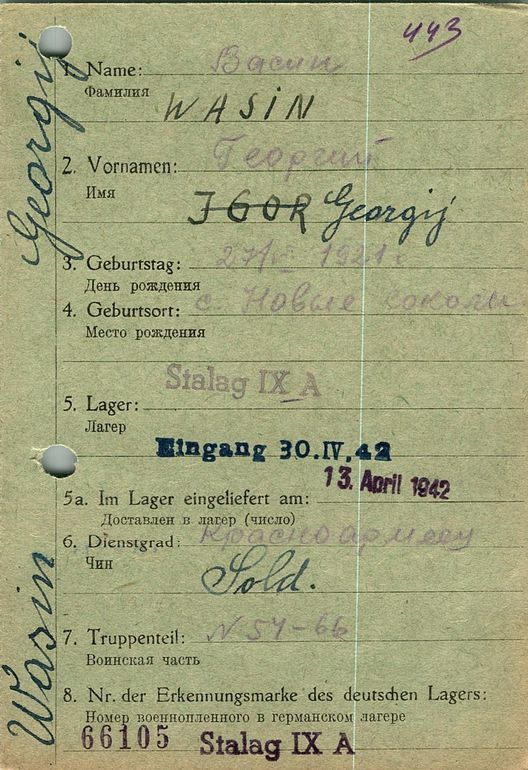 443
1. Name: Васин
Фамилия
WASIN
2. Vornamen: Георгий
Имя
IGOR Georgij
3. Geburtstag: 27/VI 1921 г
День рождения
4. Geburtsort: с. Новые соколы
Место рождения
Stalag IX A
5. Lager:
Лагер
Eingang 30.IV.42
13. April 1942
5a. Im Lager eingeliefert am:
Доставлен в лагер (число)
6. Dienstgrad: Красноармеец
Чин
Sold.
7. Truppenteil: N 54-66
Воинская часть
8. Nr. der Erkennungsmarke des deutschen Lagers:
Номер военнопленного в германском лагере
66105 Stalag IX A
Wasin Georgij